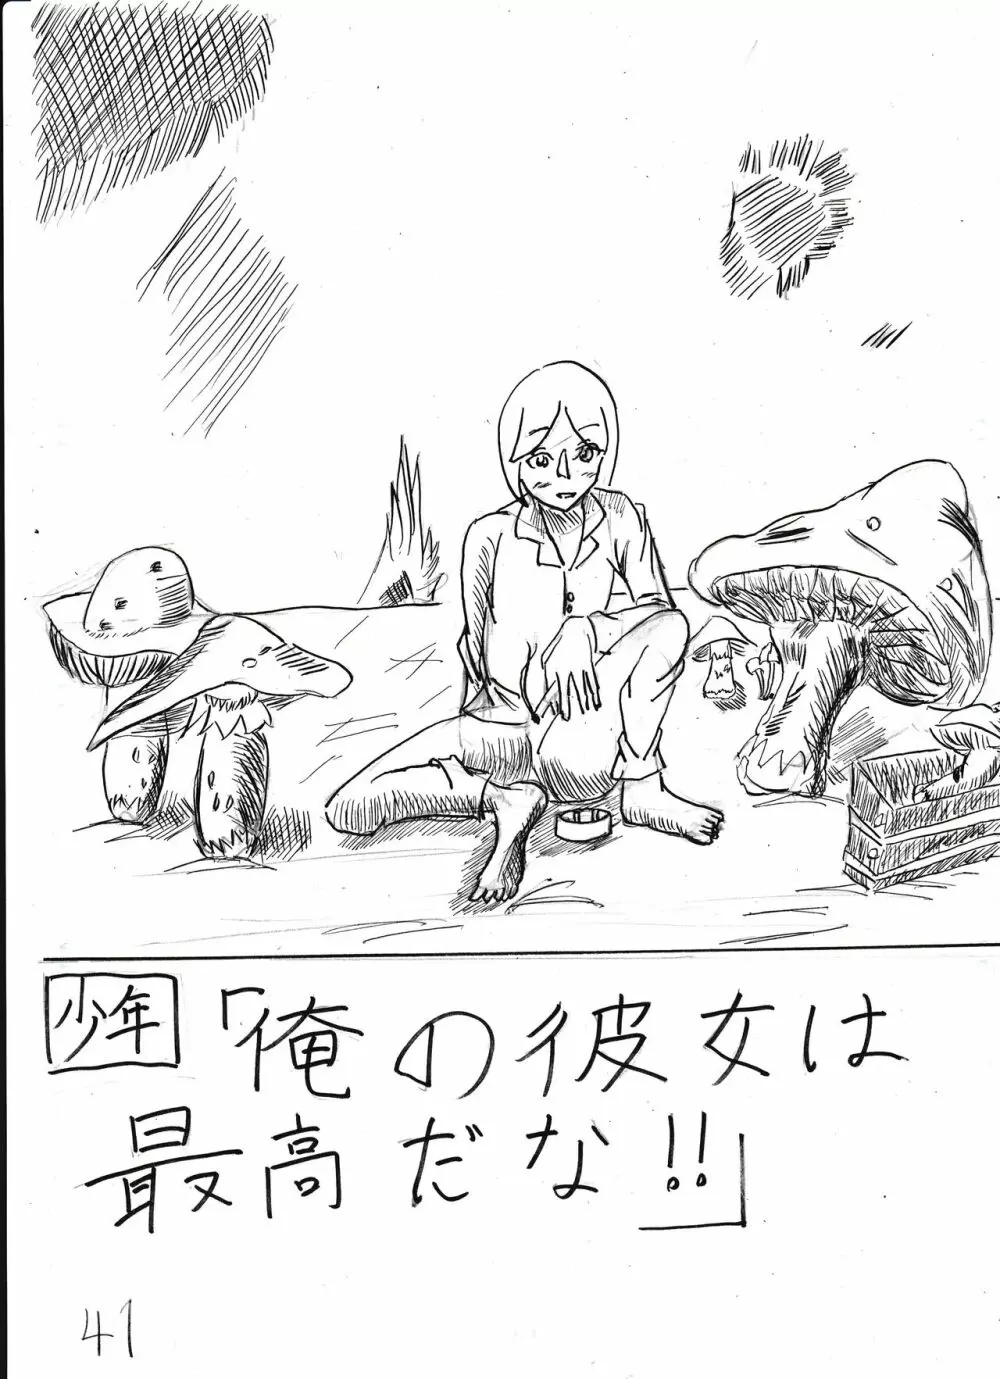 少年「俺の彼女は
最高だな!!」
41